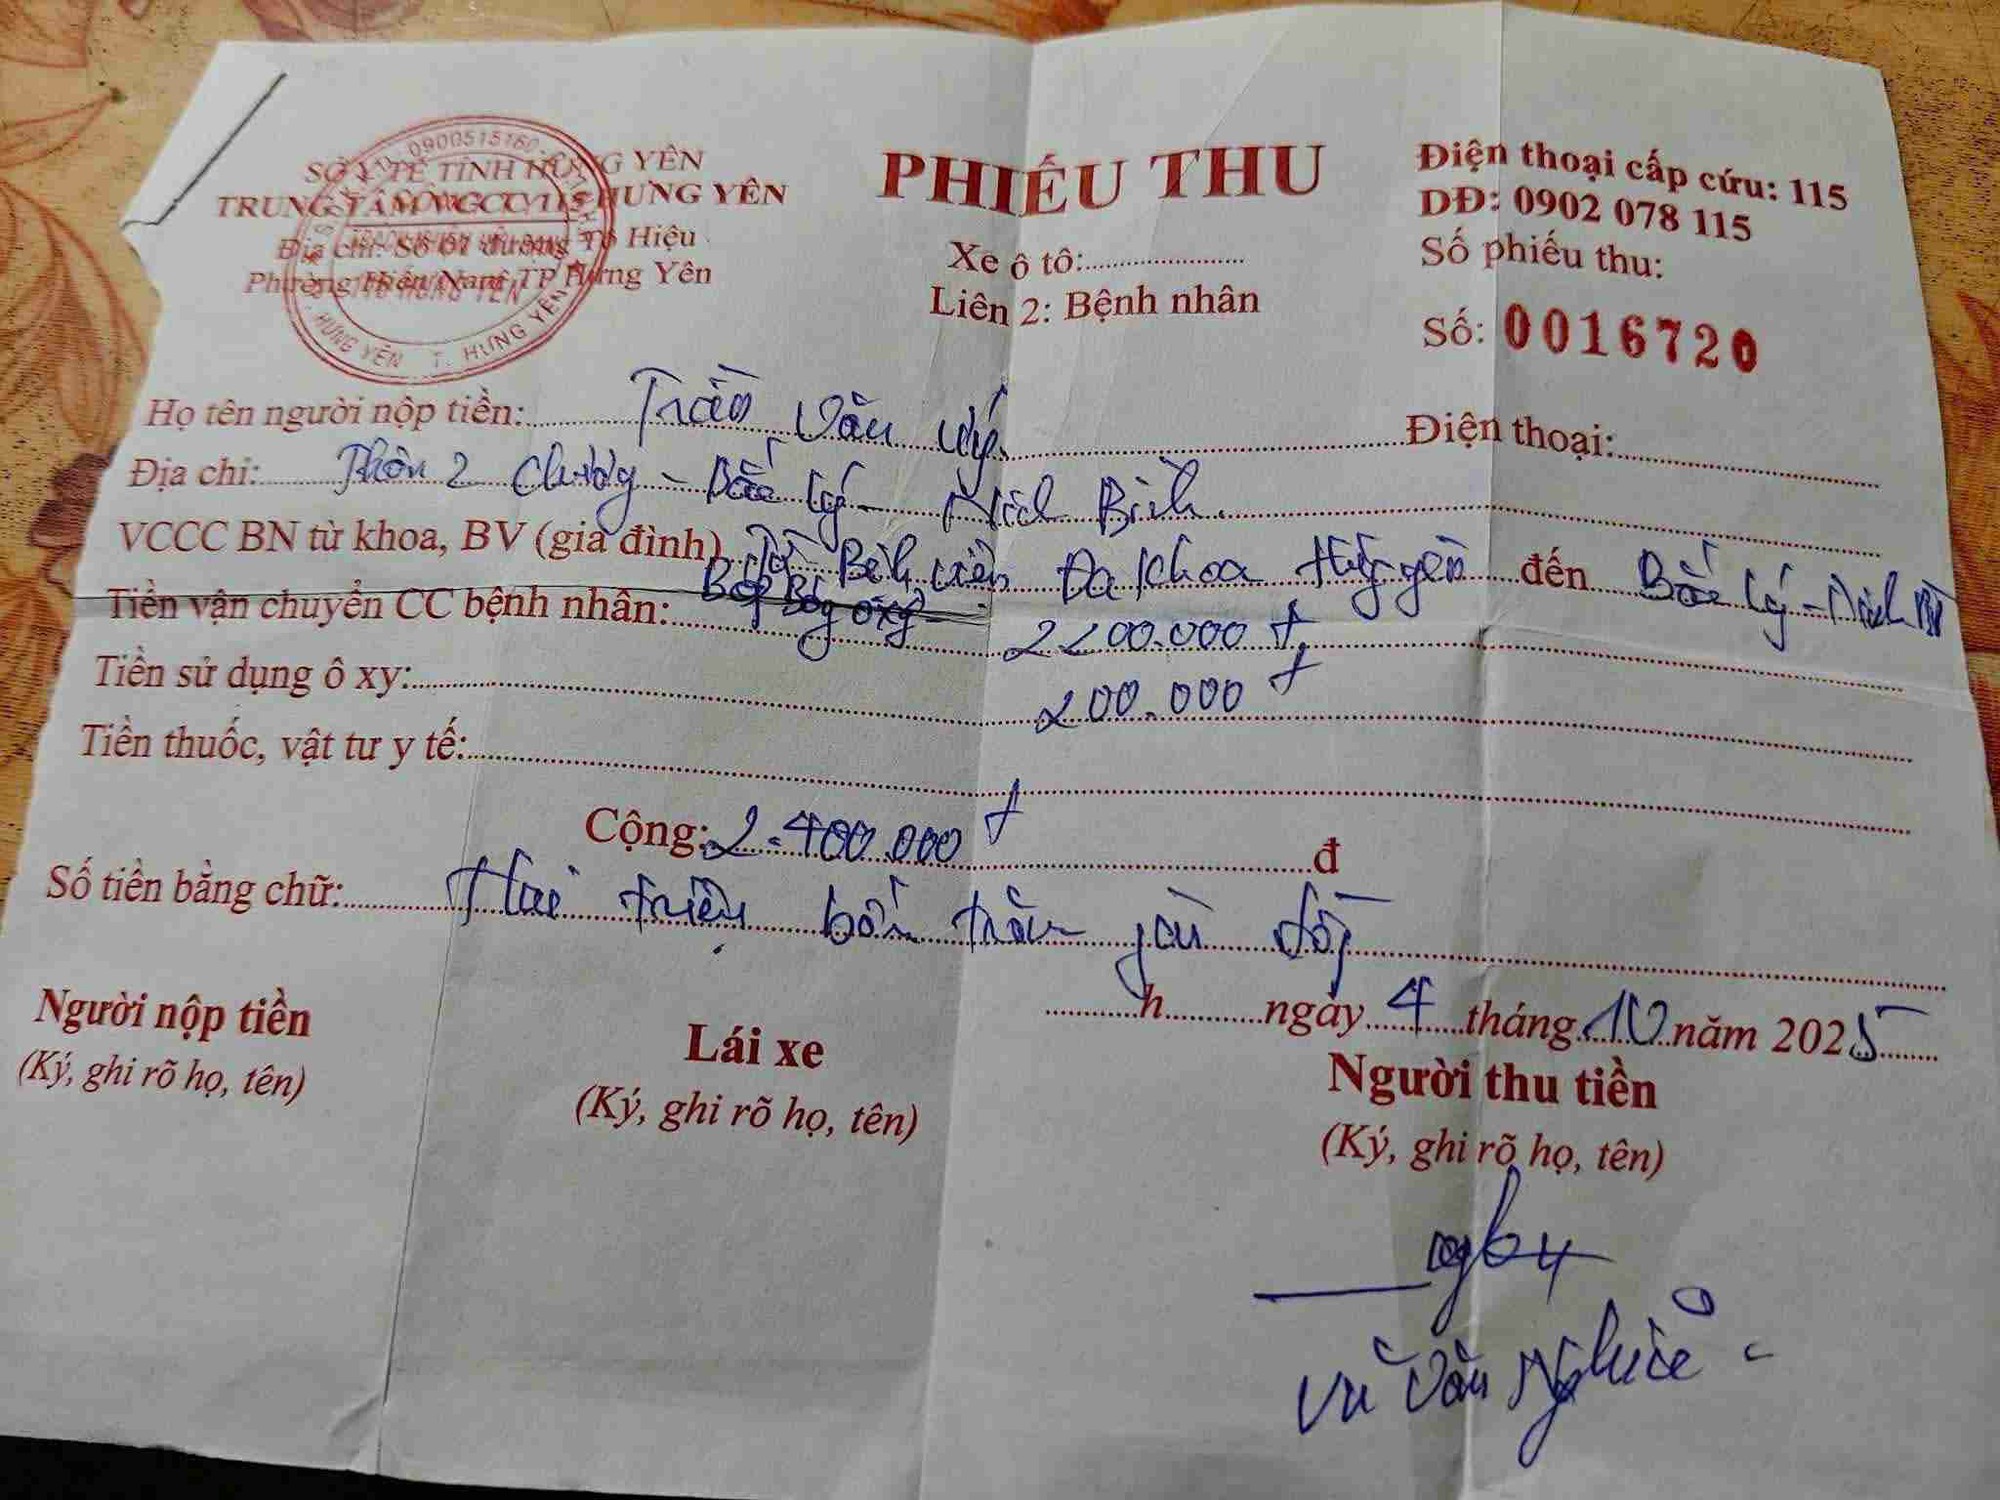 SỞ Y TẾ TỈNH HƯNG YÊN
TRUNG TÂM VCCC 115 HƯNG YÊN
Địa chỉ: Số 01 đường Tô Hiệu
Phường Hiến Nam, TP Hưng Yên
0900515160
HƯNG YÊN T. HƯNG YÊN
PHIẾU THU
Xe ô tô:
Liên 2: Bệnh nhân
Điện thoại cấp cứu: 115
DĐ: 0902 078 115
Số phiếu thu:
Số: 0016720
Họ tên người nộp tiền: Trần Văn Điện thoại:
Địa chỉ: Thôn 2 - Bắc Lý - Ninh Bình
VCCC BN từ khoa, BV (gia đình) Từ Bệnh viện Đa khoa Hưng yên đến Bắc Lý - Ninh
Tiền vận chuyển CC bệnh nhân: Bóp Bóng oxy 2200.000 đ
Tiền sử dụng ô xy: 200.000 đ
Tiền thuốc, vật tư y tế:
Cộng: 2.400.000 đ đ
Số tiền bằng chữ: Hai triệu bốn trăm đồng
h ngày 4 tháng 10 năm 2025
Người nộp tiền
(Ký, ghi rõ họ, tên)
Lái xe
(Ký, ghi rõ họ, tên)
Người thu tiền
(Ký, ghi rõ họ, tên)
Vũ Văn